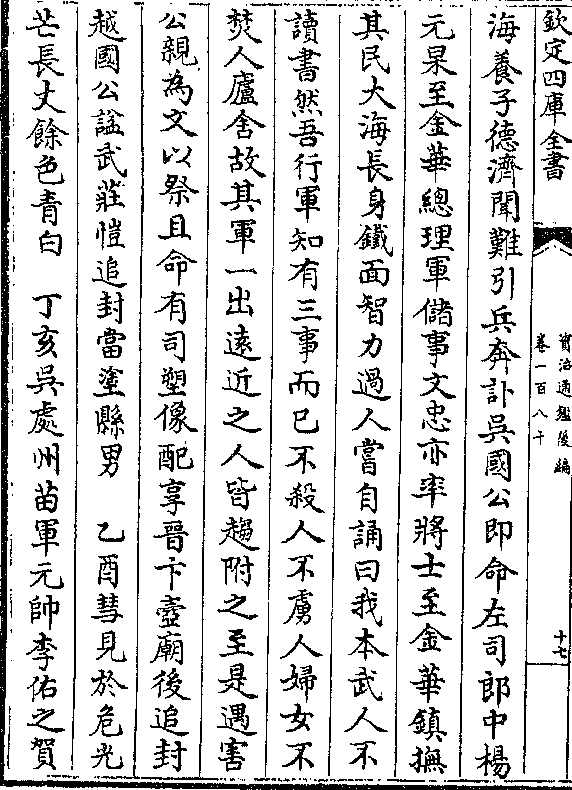 欽定四庫全書
資治通鑑後編
卷一百八十
十七
海養子德濟聞難引兵奔訃吳國公即命左司郎中楊
元杲至金華總理軍儲事文忠亦率將士至金華鎮撫
其民大海長身鐵面智力過人嘗自誦曰我本武人不
讀書然吾行軍知有三事而已不殺人不虜人婦女不
焚人廬舍故其軍一出遠近之人皆趨附之至是遇害
公親為文以祭且命有司塑像配享晉卞壼廟後追封
越國公諡武莊愷追封當塗縣男　乙酉彗見於危光
芒長丈餘色青白　丁亥吳處州苗軍元帥李佑之賀